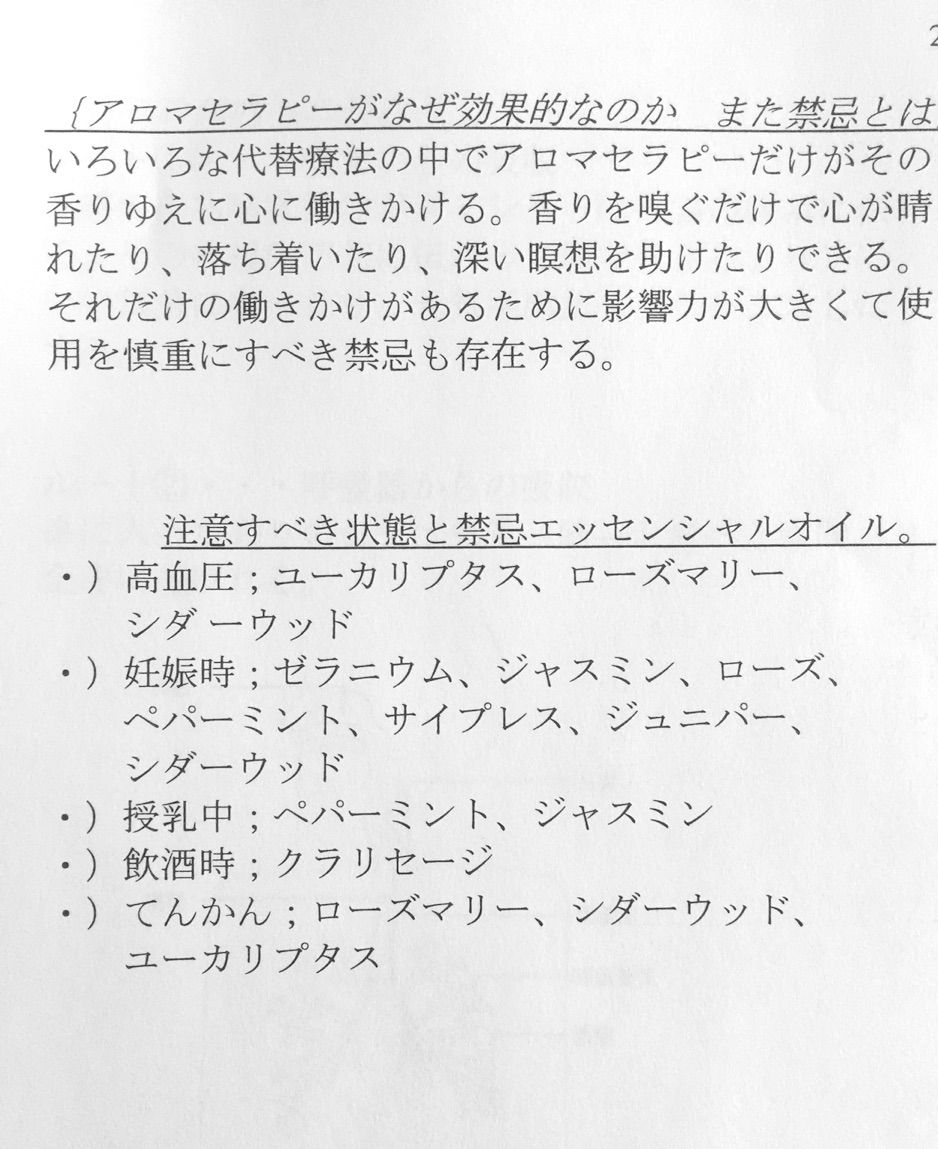 2
{アロマセラピーがなぜ効果的なのか　また禁忌とは
いろいろな代替療法の中でアロマセラピーだけがその
香りゆえに心に働きかける。香りを嗅ぐだけで心が晴
れたり、落ち着いたり、深い瞑想を助けたりできる。
それだけの働きかけがあるために影響力が大きくて使
用を慎重にすべき禁忌も存在する。
注意すべき状態と禁忌エッセンシャルオイル。
・）高血圧；ユーカリプタス、ローズマリー、
シダーウッド
・）妊娠時；ゼラニウム、ジャスミン、ローズ、
ペパーミント、サイプレス、ジュニパー、
シダーウッド
・）授乳中；ペパーミント、ジャスミン
・）飲酒時；クラリセージ
・）てんかん；ローズマリー、シダーウッド、
ユーカリプタス